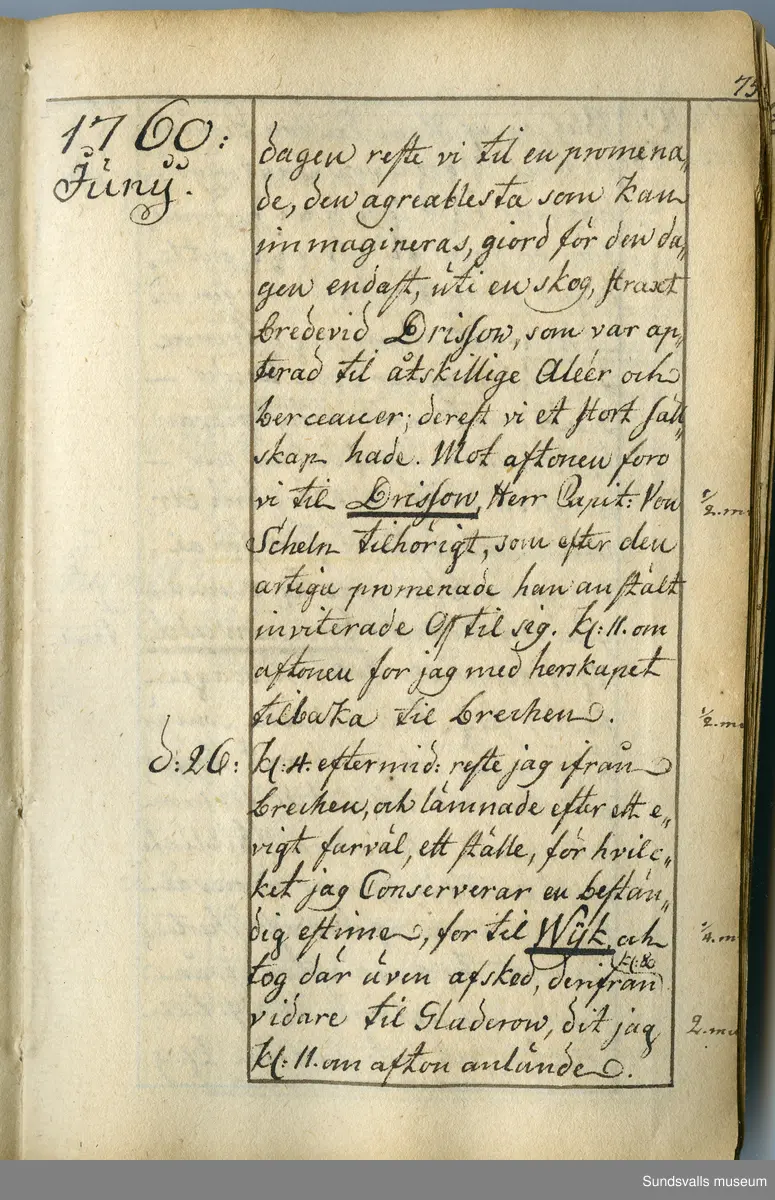 75
1760:
Juny.
dagen reste vi til en promena„
de, den agreablesta som kan
immagineras, giord för den da„
gen endast, uti en skog, straxt
bredevid Drissow, som var ap„
terad til åtskillige Aléer och
berceauer; derest vi et stort säll„
skap hade. Mot aftonen foro
vi til Drissow, Herr Capit: Von
1/2. m
Scheln tilhörigt, som efter den
artiga promenade han anstält
inviterade Oss til sig. Kl: 11. om
aftonen for jag med herskapet
tilbaka til Brechen.
1/2. m
d: 26:
Kl: 4. eftermid: reste jag ifrån
Brechen, och lämnade efter ett e„
vigt farväl, ett ställe, för hvilc„
ket jag Conserverar en bestän„
dig estime, for til Wÿk, och
1/4. m
kl: 8
tog där även afsked, derifrån
vidare til Gladerow, dit jag
2. m
Kl: 11. om afton anlände.
Sundsvalls museum